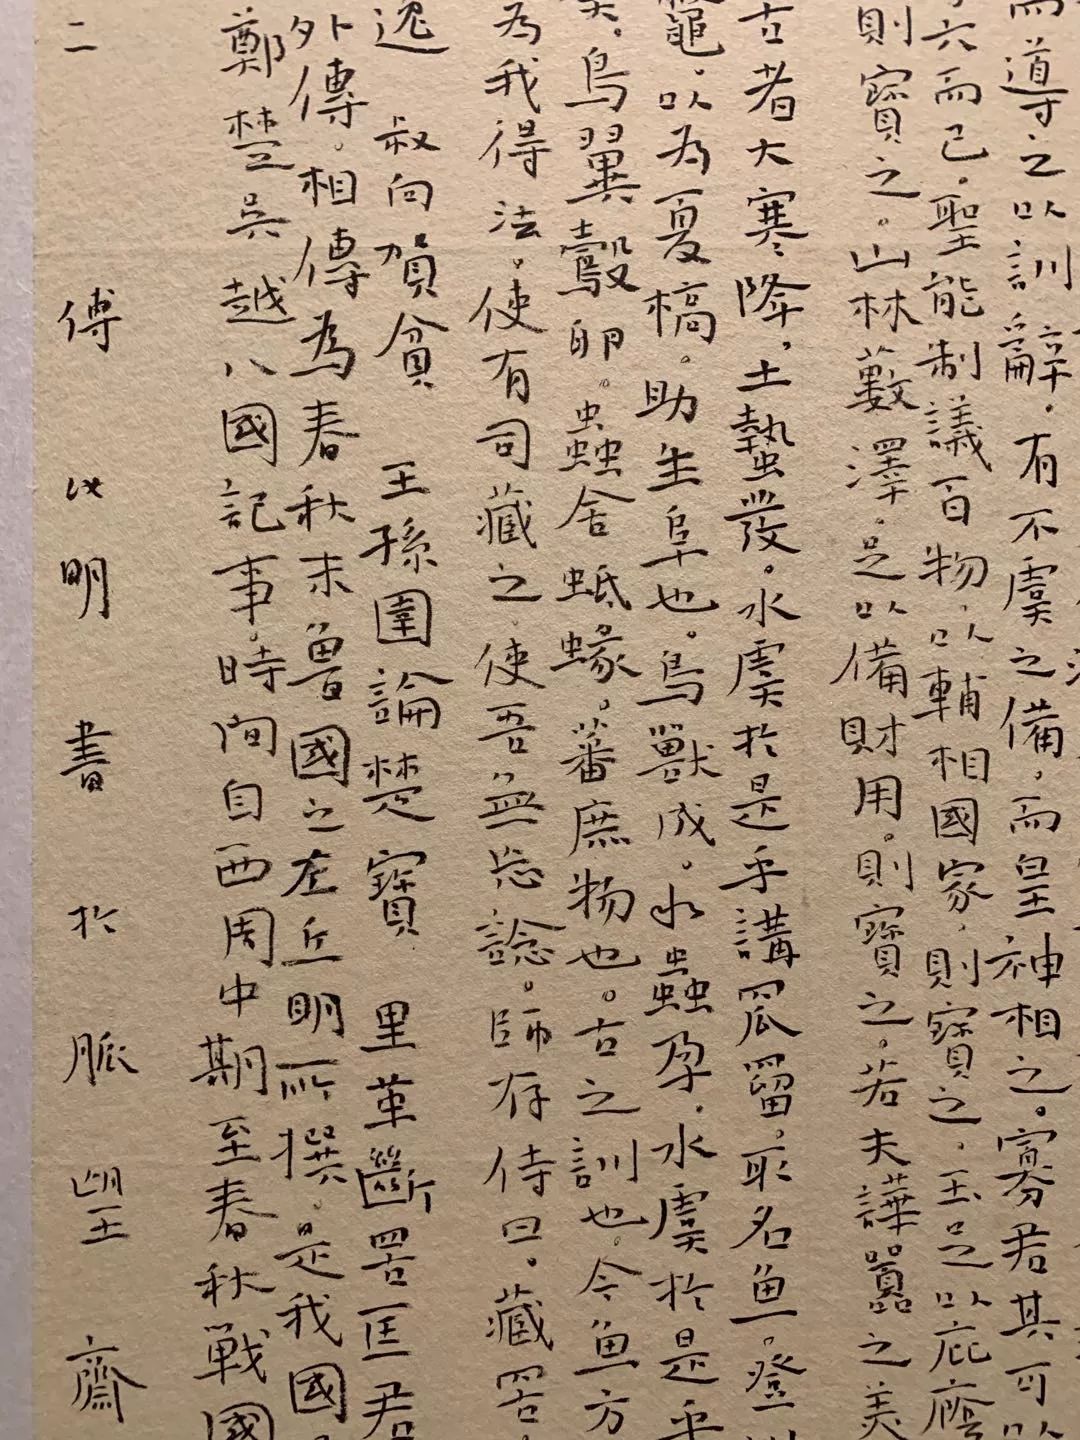 而導之以訓辭。有不虞之備，而皇神相之。寡君其可以
六而已。聖能制議百物，以輔相國家，則寶之，玉足以庇廕
則寶之。山林藪澤，足以備財用。則寶之。若夫譁囂之美
古者大寒降，土蟄發。水虞於是乎講罛罶，取名魚。登
以為夏槁。助生阜也。鳥獸成。水蟲孕，水虞於是乎
鳥翼鷇卵。蟲舍蚳蝝。蕃庶物也。古之訓也。今魚方
為我得法，使有司藏之，使吾無忘諗。師存侍曰。藏罟
逸 叔向賀貧 王孫圉論楚寶 里革斷罟匡君
外傳。相傳為春秋末魯國之左丘明所撰。是我國
鄭楚吳越八國記事。時間自西周中期至春秋戰國
二 傅以明書於脈望齋